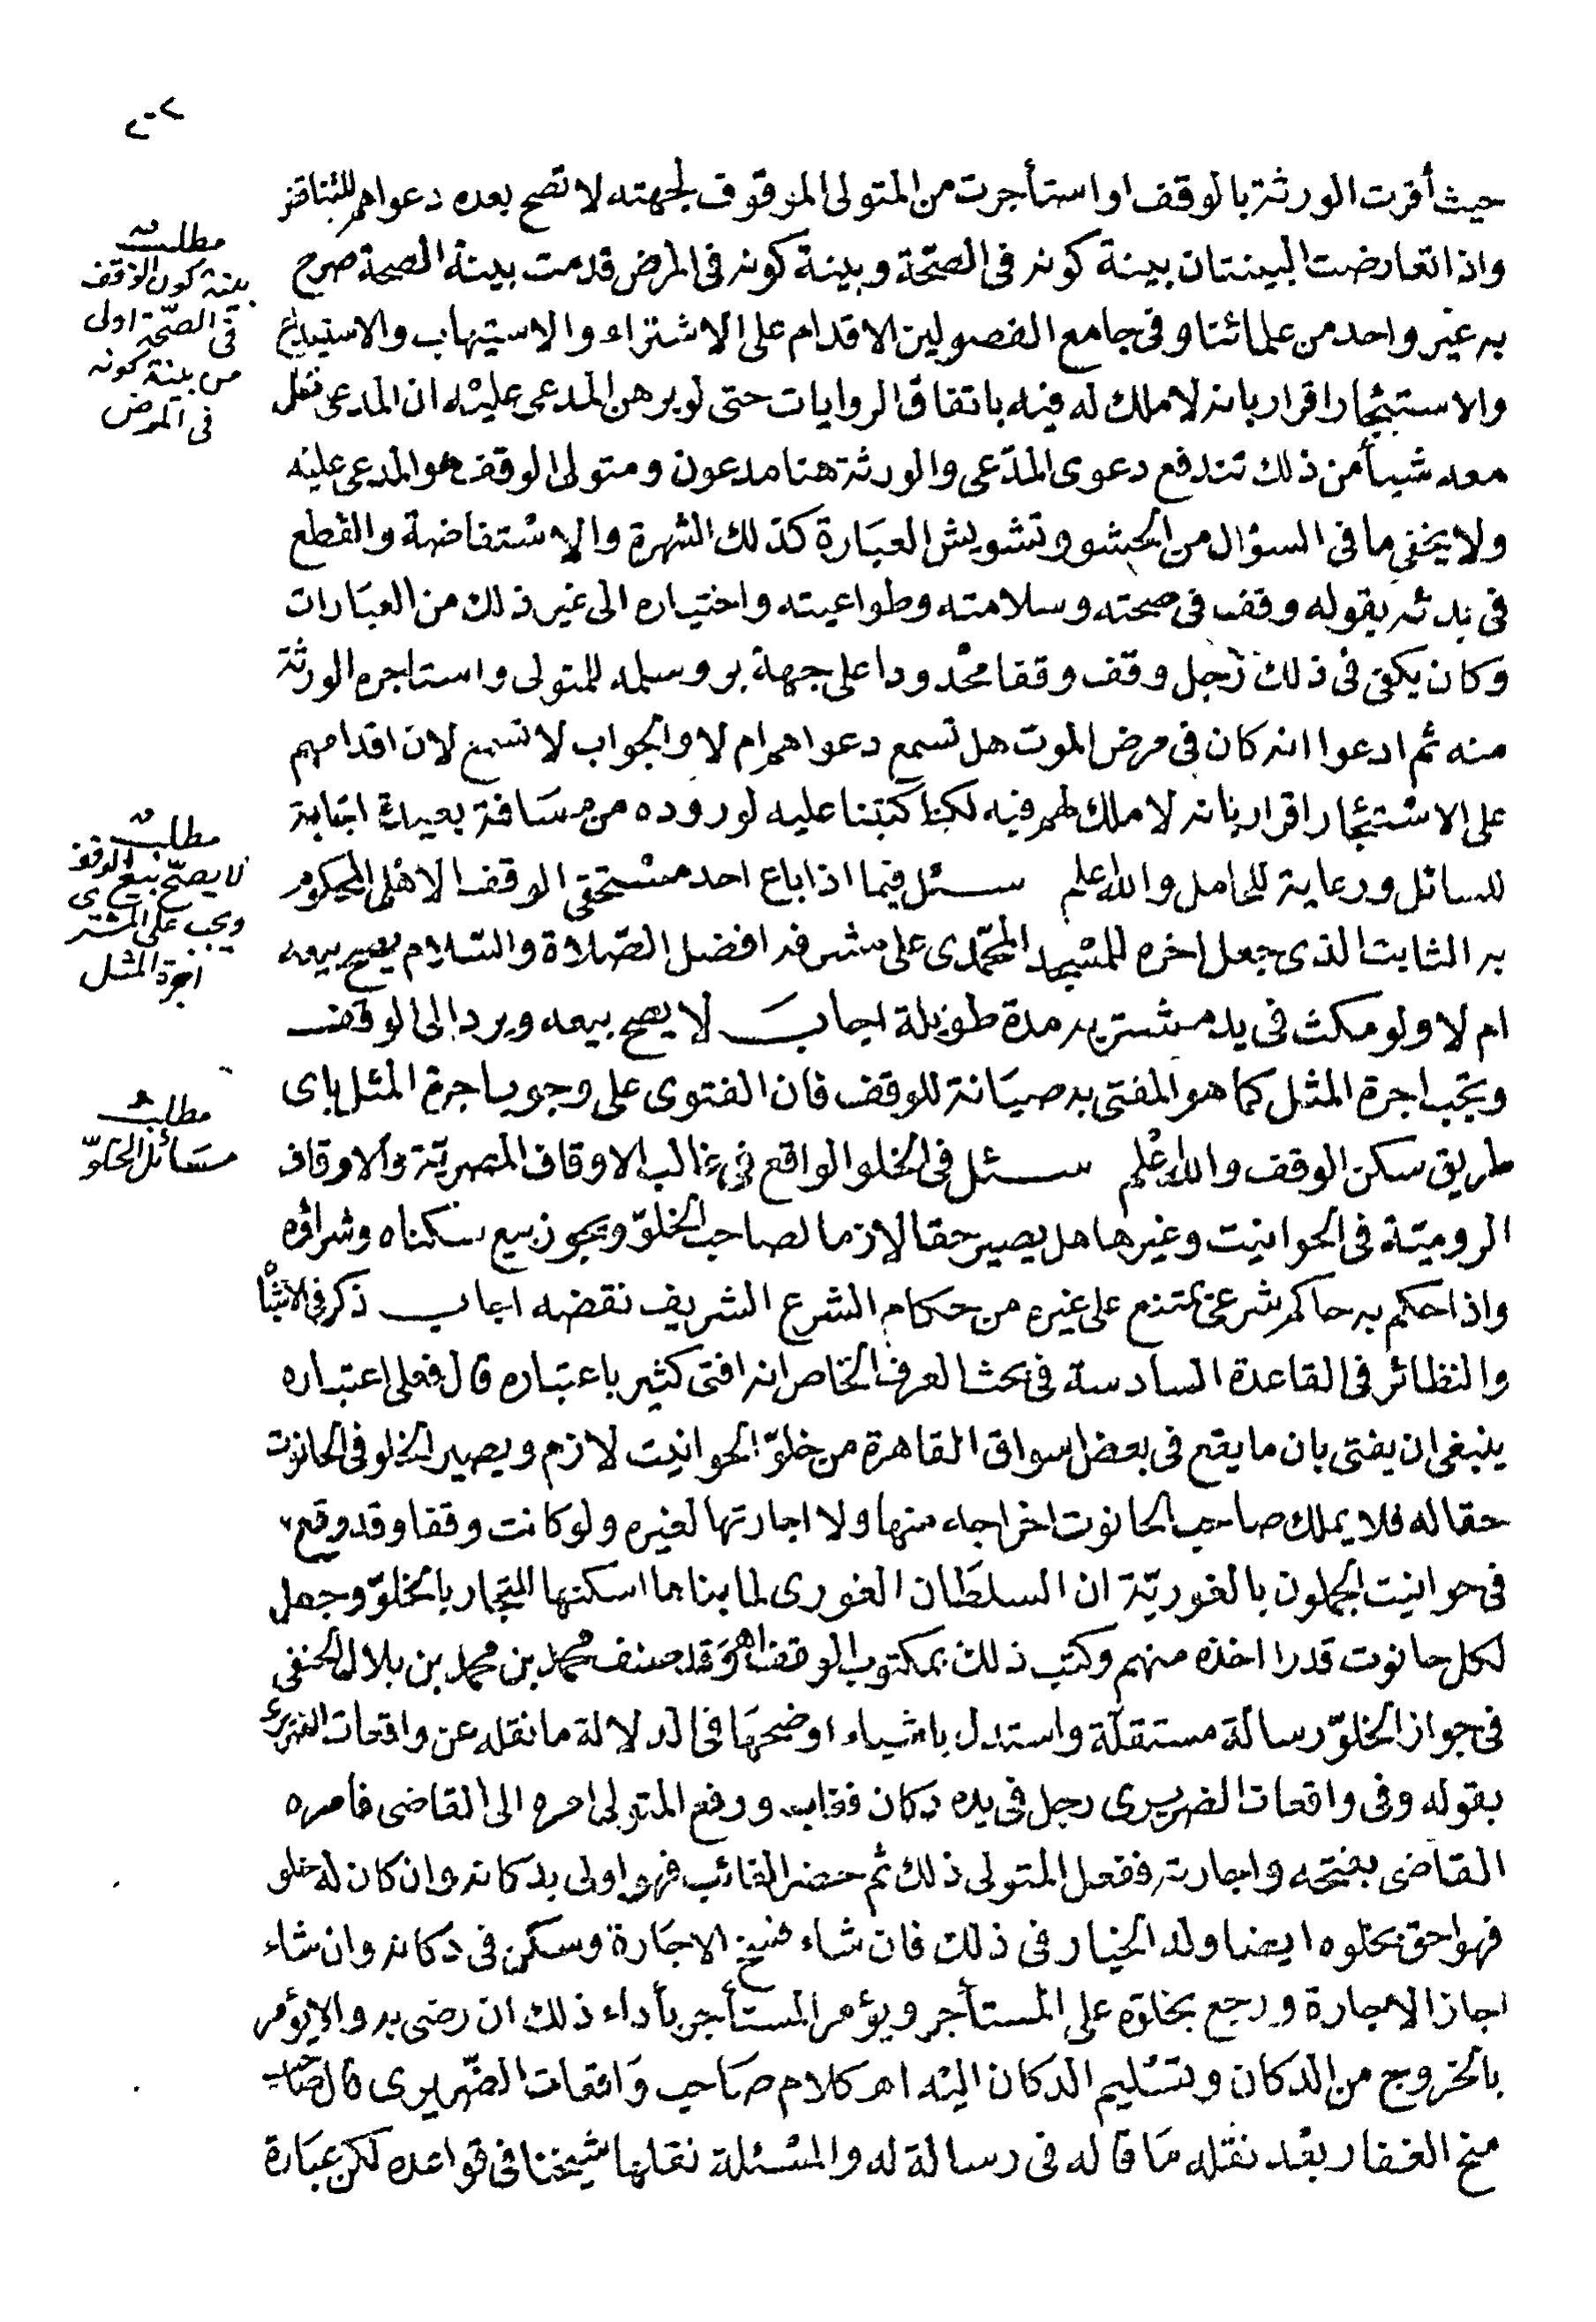 ٢٠٢
حيث أقرت الورثة بالوقف او استأجرت من المتولى الموقوف لجهته لا تصح بعده دعواهم للتناقض
واذا تعارضت البينتان بينة كونه فى الصحّة وبينة كونه فى المرض قدمت بينة الصحة صرح
به غير واحد من علمائنا وفى جامع الفصولين الاقدام على الاشتراء والاستيهاب والاستيداع
والاستئجار اقرار بانه لا ملك له فيه باتفاق الروايات حتى لو برهن المدعى عليه ان المدعى فعل
معه شيأ من ذلك تندفع دعوى المدّعى والورثة هنا مدعون ومتولى الوقف هو المدعى عليه
ولا يخفى ما فى السؤال من الحشو وتشويش العبارة كذلك الشهرة والاستفاضة والقطع
فى بدئه بقوله وقف فى صحته وسلامته وطواعيته واختياره الى غير ذلك من العبارات
وكان يكفى فى ذلك رجل وقف وقفا محدودا على جهة بر وسلمه للمتولى واستاجره الورثة
منه ثم ادعوا انه كان فى مرض الموت هل تسمع دعواهم ام لا والجواب لا تسمع لان اقدامهم
على الاستئجار اقرار بانه لا ملك لهم فيه لكنا كتبنا عليه لوروده من مسافة بعيدة اجابة
للسائل ورعاية للحامل والله اعلم سئل فيما اذا باع احد مستحقى الوقف الاهلى المحكوم
به الثابت الذى جعل اخره للمسجد المحمّدى على مشرفه افضل الصّلاة والسّلام يصح بيعه
ام لا ولو مكث فى يد مشتريه مدة طويلة اجاب لا يصح بيعه ويرد الى الوقف
ويجب اجرة المثل كما هو المفتى به صيانة للوقف فان الفتوى على وجوب اجرة المثل باى
طريق سكن الوقف والله اعلم سئل فى الخلو الواقع فى غالب الاوقاف المصريّة والاوقاف
الروميّة فى الحوانيت وغيرها هل يصير حقا لازما لصاحب الخلوّ ويجوز بيع سكناه وشراؤه
واذا حكم به حاكم شرعى يمتنع على غيره من حكام الشرع الشريف نقضه اجاب ذكر فى الاشباه
والنظائر فى القاعدة السادسة فى بحث العرف الخاص انه افتى كثير باعتباره قال فعلى اعتباره
ينبغى ان يفتى بان ما يقع فى بعض اسواق القاهرة من خلوّ الحوانيت لازم ويصير الخلو فى الحانوت
حقا له فلا يملك صاحب الحانوت اخراجه منها ولا اجارتها لغيره ولو كانت وقفا وقد وقع
فى حوانيت الجملون بالغوريّة ان السلطان الغورى لما بناها اسكنها التجار بالخلوّ وجعل
لكل حانوت قدرا اخذه منهم وكتب ذلك بمكتوب الوقف اهـ وقد صنف محمد بن محمد بن بلال الحنفى
فى جواز الخلوّ رسالة مستقلّة واستدل باشياء اوضحها فى الدلالة ما نقله عن واقعات الضريرى
بقوله وفى واقعات الضريرى رجل فى يده دكان فغاب ورفع المتولى امره الى القاضى فامره
القاضى بفتحه واجارته ففعل المتولى ذلك ثم حضر الغائب فهو اولى بدكانه وان كان له خلو
فهو احق بخلوه ايضا وله الخيار فى ذلك فان شاء فسخ الاجارة وسكن فى دكانه وان شاء
اجاز الاجارة ورجع بخلوّه على المستأجر ويؤمر المستأجر بأداء ذلك ان رضى به والا يؤمر
بالخروج من الدكان وتسليم الدكان اليه اهـ كلام صاحب واقعات الضّريرى قال صاحب
منح الغفار بعد نقله ما قاله فى رسالة له والمسئلة نقلها شيخنا فى قواعده لكن عبارة
مطلب
بينة كون الوقف
فى الصّحّة اولى
من بينة كونه
فى المرض
مطلب
لا يصحّ بيع الوقف
ويجب على المشترى
اجرة المثل
مطلب
مسائل الخلوّ